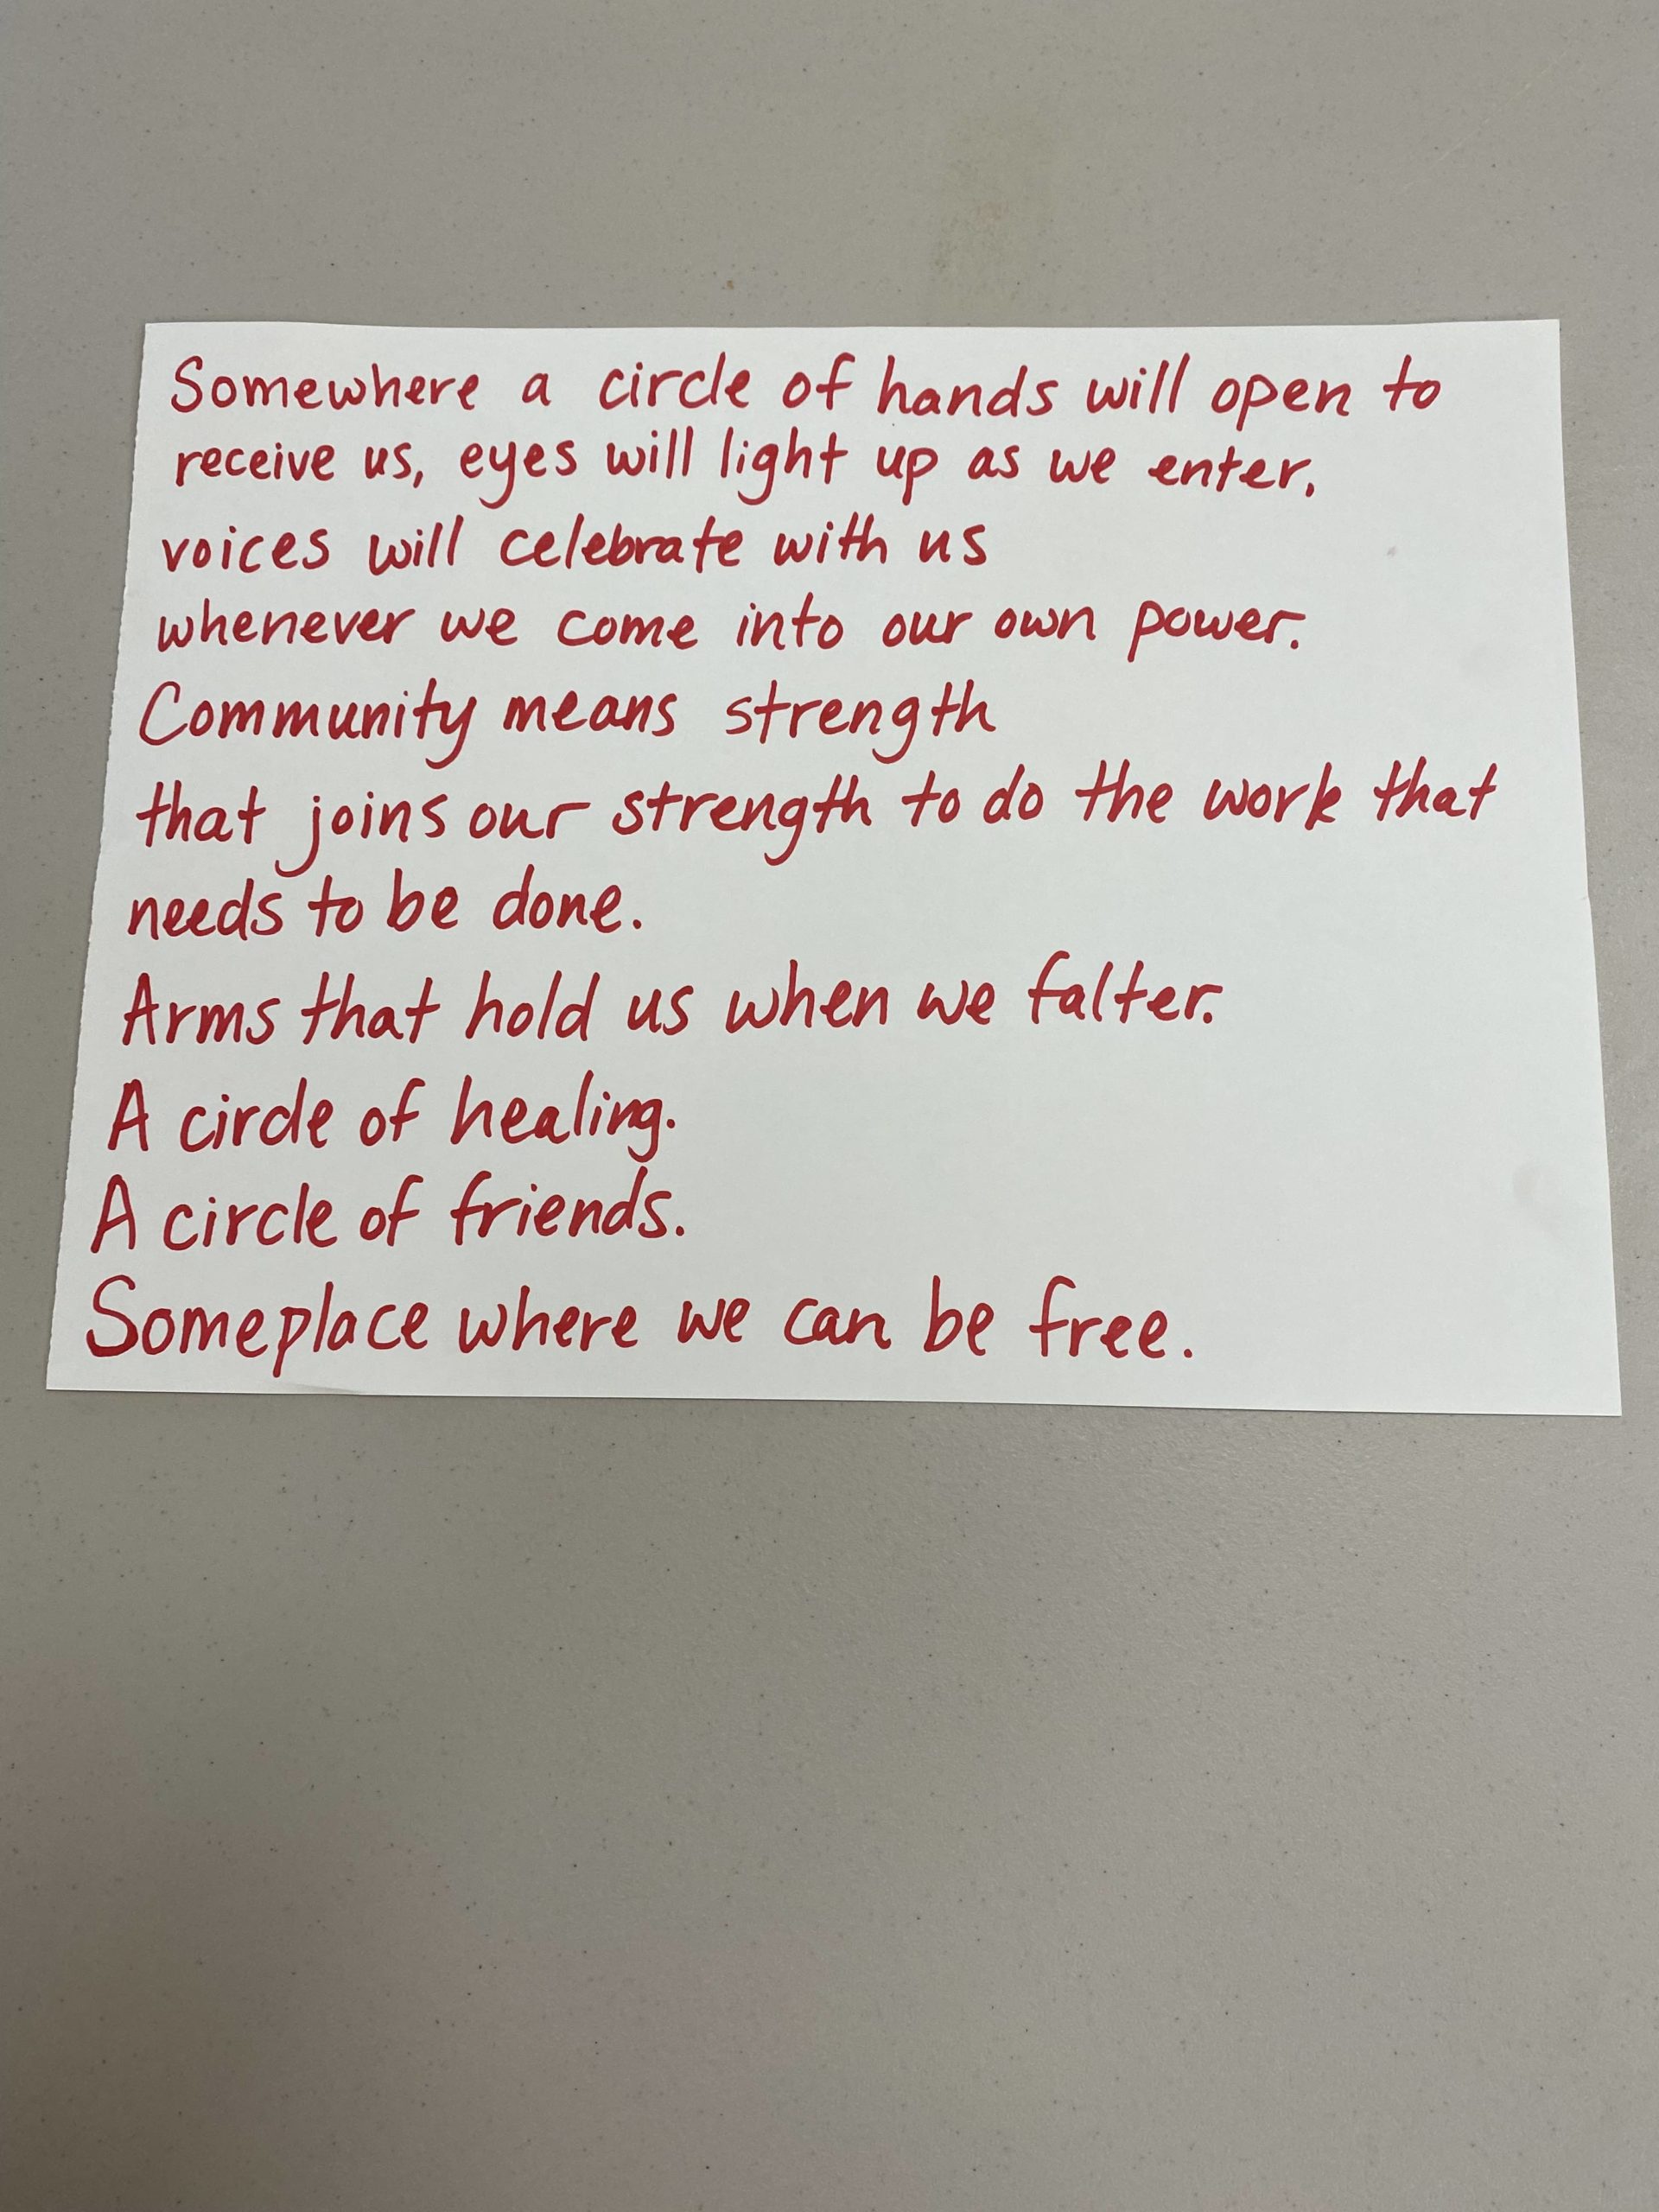 Somewhere a circle of hands will open to
receive us, eyes will light up as we enter,
voices will celebrate with us
whenever we come into our own power.
Community means strength
that joins our strength to do the work that
needs to be done.
Arms that hold us when we falter.
A circle of healing.
A circle of friends.
Someplace where we can be free.